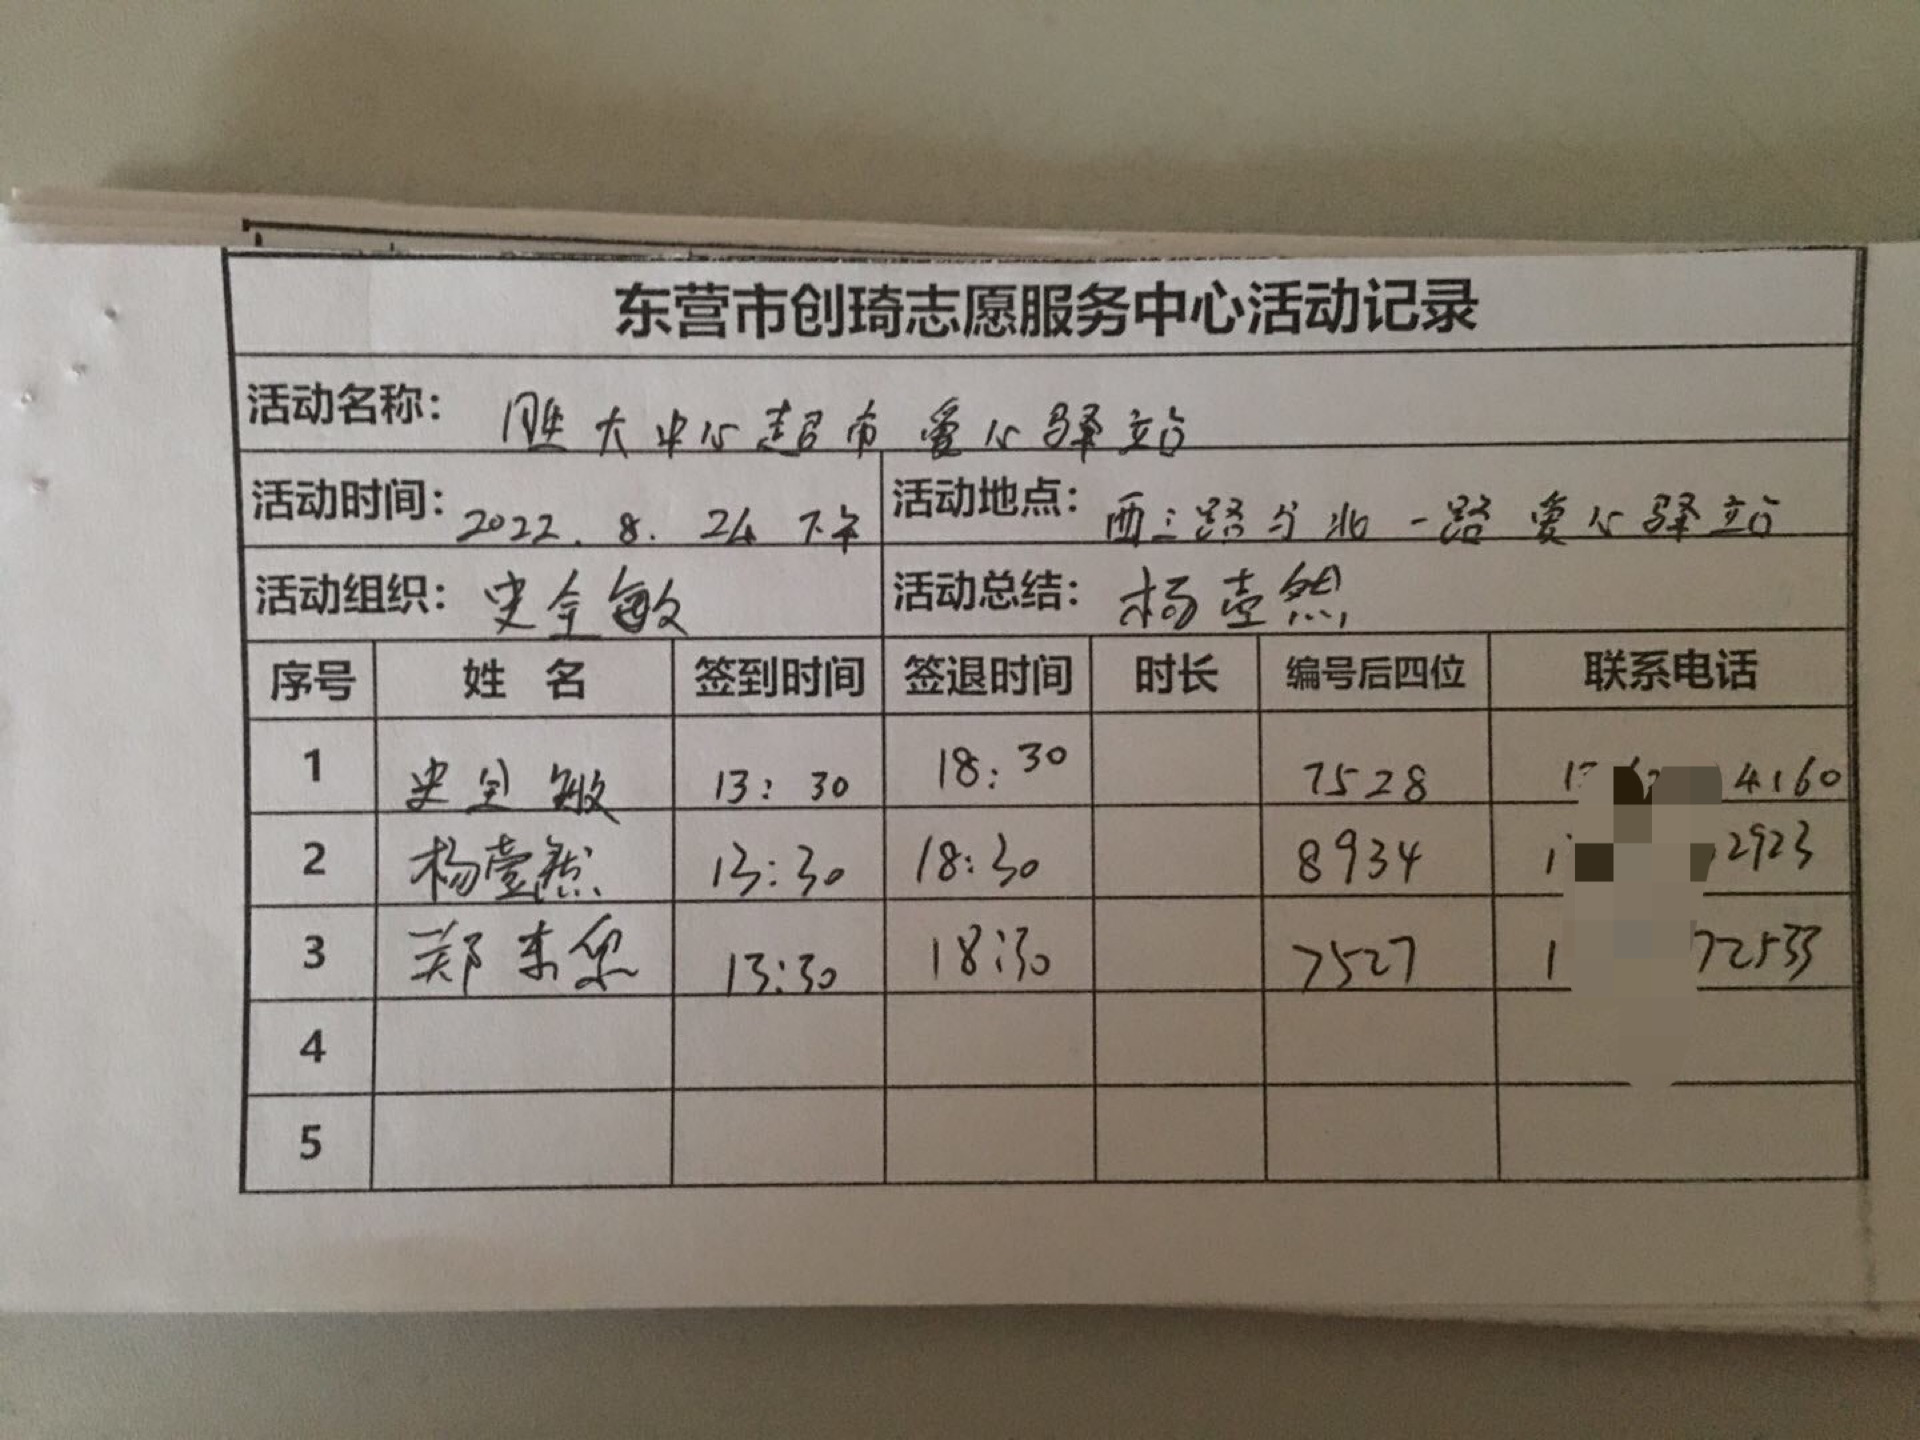 东营市创琦志愿服务中心活动记录
活动名称： 胜大中心超市爱心驿站
活动时间：2022.8.24下午 活动地点：西三路与北一路爱心驿站
活动组织：史全敏 活动总结：杨壹然
序号 姓 名 签到时间 签退时间 时长 编号后四位 联系电话
1 史全敏 13:30 18:30 7528 4160
2 杨壹然 13:30 18:30 8934 1 2923
3 郑 13:30 18:30 7527 1 72533
4
5